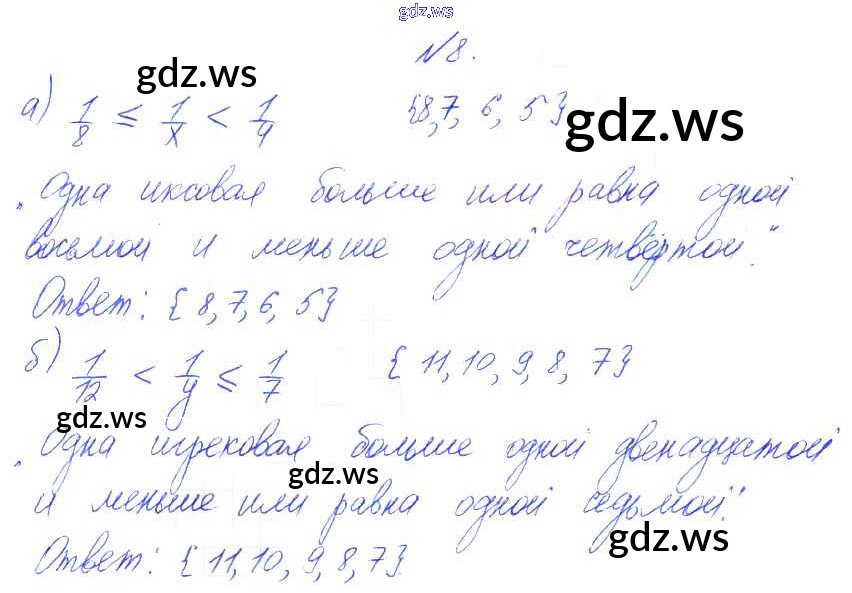 gdz.ws
№8.
gdz.ws
а) 1/8 ≤ 1/x < 1/4 {8, 7, 6, 5}
gdz.ws
„Одна иксовая больше или равна одной
восьмой и меньше одной четвёртой."
Ответ: {8, 7, 6, 5}
б) 1/12 < 1/y ≤ 1/7 {11, 10, 9, 8, 7}
gdz.ws
„Одна игрековая больше одной двенадцатой
gdz.ws
и меньше или равна одной седьмой."
gdz.ws
Ответ: {11, 10, 9, 8, 7}